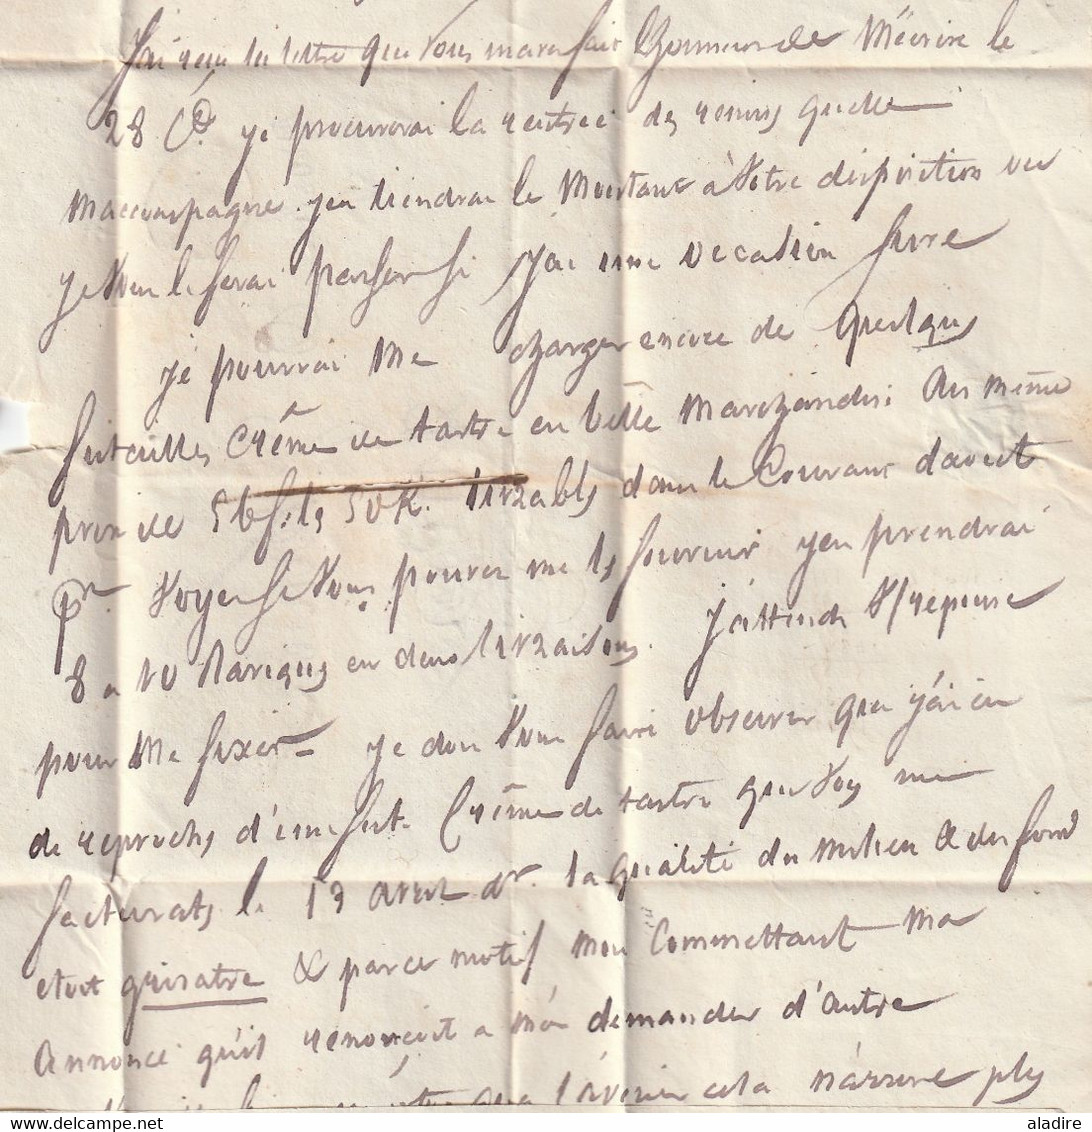 J'ai reçu la lettre que vous m'avez fait l'honneur de M'écrire le
28 Ct. je procurerai la rentrée des remises qu'elle
m'accompagne. j'en tiendrai le Montant à Votre disposition ou
je vous le ferai passer si j'ai une occasion sure
je pourrai Me charger encore de quelques
futailles Crême de tartre en belle Marchandise Au même
prix de 56 f. les 50 K. livrables dans le Courant d'aoust
pn. Voyez si Vous pouvez me les fournir j'en prendrai
8 a 10 Bariques en deux livraisons. J'attends V/ reponse
pour Me fixer = je dois Vous faire observer que j'ai eu
de reproches d'une fut. Crême de tartre que vous me
facturates le 13 avril dr. la qualité du milieu & du fond
etoit grisatre & par ce motif Mon Commettant M'a
Annoncé qu'il renonçoit a m'en demander d'Autre
que l'avenir cela n'arrive plus
aladire